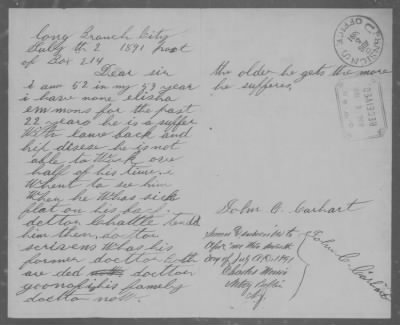 Long Branch City
July th 2 1891 post
of Box 214
Dear sir
i am 52 in my 53 year
i have none elisha
emmons for the past
22 years he is a suffer
With lame back and
hip disese he is not
able to Work ove
half of his time i
Whent to see him
When he Whas sick
flat on his back
doctor Challte tended
him then doctor
scrivens Whas his
former docttor both
are ded docttor
is his famely
docttor now.
the older he gets the more
he sufferes.
John C. Carhart
Sworn & subscribed to
before me this second
day of July A.D. 1891
Charles Morris
Notary Public
N.J.
John C. Carhart
PENSION OFFICE
RECEIVED